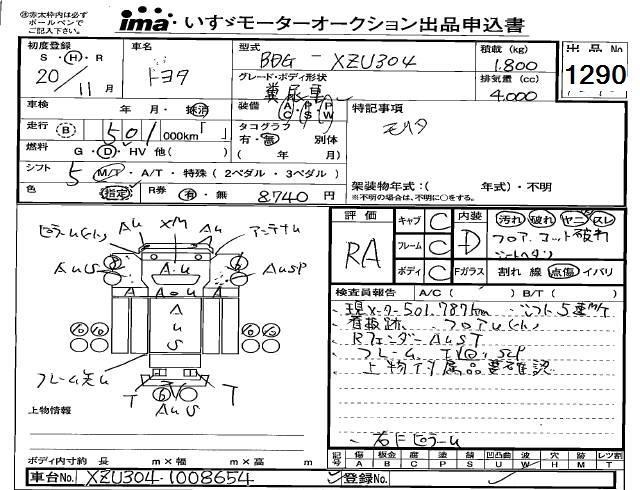 ※赤太枠内は必ず
ボールペンで
ご記入下さい。
ima いすゞモーターオークション出品申込書
初度登録
S・H・R
20/11月
車名
トヨタ
型式
BDG-XZU304
積載(kg)
1.800
出品No
1290
グレード・ボディ形状
糞尿車
排気量(cc)
4.000
車検 年・月・抹消
装備 AC・PS・PW
特記事項
モリタ
走行 (B) 501 000km「 」
タコグラフ
有・無 別体
( 年 月)
燃料 G・D・HV 他( )
シフト 5 M/T・A/T・特殊(2ペダル・3ペダル)
架装物年式:( 年式)・不明
※不明の場合は、不明に○をする。
色 指定 R券 有・無 8.740円
評価
RA
キャブ C
フレーム C
ボディ C
内装 D
汚れ 破れ ヤニ スレ
フロアコット破れ
Fガラス 割れ 線 点傷 イバリ
検査員報告 A/C( ) B/T( )
・現メーター501.787km ・シフト5速M/T
・看板跡 ・フロアU(小)
・RフェンダーAUST
・上物付属品要確認
・右Fピラーu
ピラーu(小)
AU
XM
AU
アンテナu
AUS
AUSP
A・u
A
AOU
A
A
u
S
フレーム先u
T
T
AUS
上物情報
ボディ内寸約 長 m×幅 m×高 m
記号 傷 A 板金 B 腐 C 塗 P 錆 S 凹凸曲 U 波 W 穴 H 跡 M レツ割 T
車台No. XZU304-1008654
登録No.